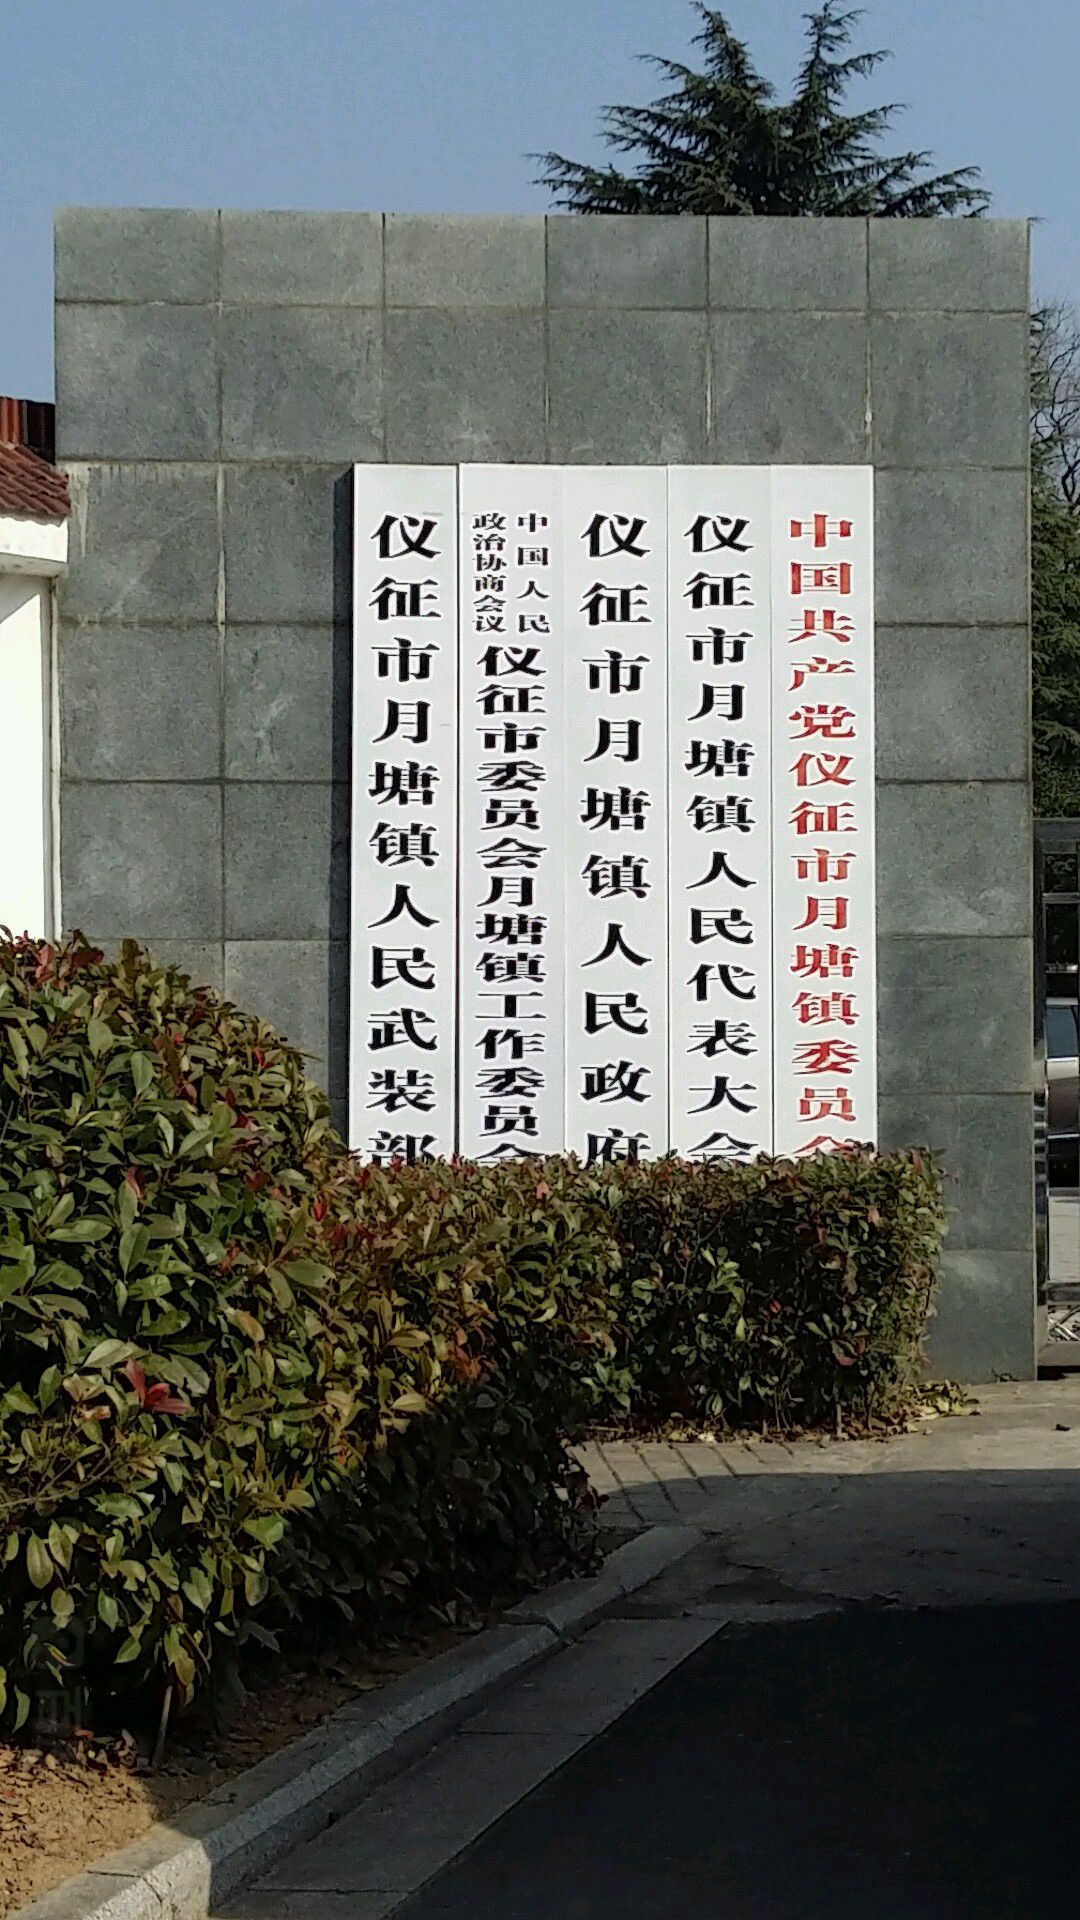 中国共产党仪征市月塘镇委员会
仪征市月塘镇人民代表大会
仪征市月塘镇人民政府
中国人民
政治协商会议
仪征市委员会月塘镇工作委员会
仪征市月塘镇人民武装部